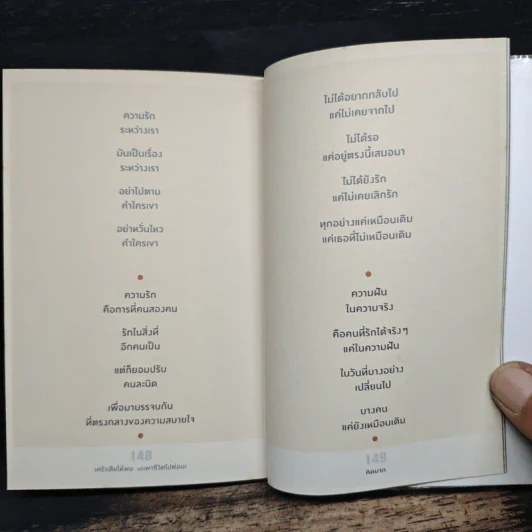 ความรัก
ระหว่างเรา
มันเป็นเรื่อง
ระหว่างเรา
อย่าไปตาม
คำใครเขา
อย่าหวั่นไหว
คำใครเขา
ความรัก
คือการที่คนสองคน
รักในสิ่งที่
อีกคนเป็น
แต่ก็ยอมปรับ
คนละนิด
เพื่อมาบรรจบกัน
ที่ตรงกลางของความสบายใจ
148
เศร้าเสียให้พอ
ไม่ได้อยากกลับไป
แค่ไม่เคยจากไป
ไม่ได้รอ
แค่อยู่ตรงนี้เสมอมา
ไม่ได้ยังรัก
แค่ไม่เคยเลิกรัก
ทุกอย่างแค่เหมือนเดิม
แค่เธอที่ไม่เหมือนเดิม
ความฝัน
ในความจริง
คือคนที่รักได้จริงๆ
แค่ในความฝัน
ในวันที่บางอย่าง
เปลี่ยนไป
บางคน
แค่ยังเหมือนเดิม
149
คิดมาก